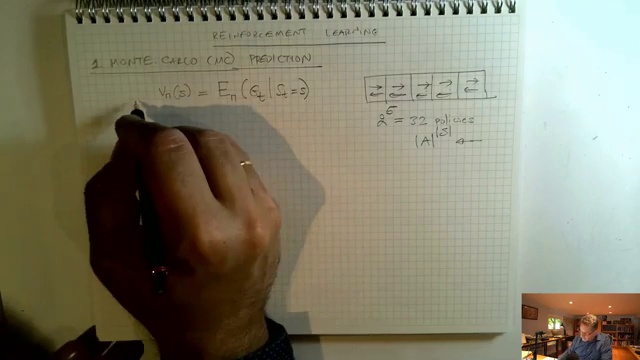 REINFORCEMENT LEARNING
1. MONTE CARLO (MC) PREDICTION
Vπ(s) = Eπ(Gt | St = s)
2^5 = 32 policies
|A|^|S| ←